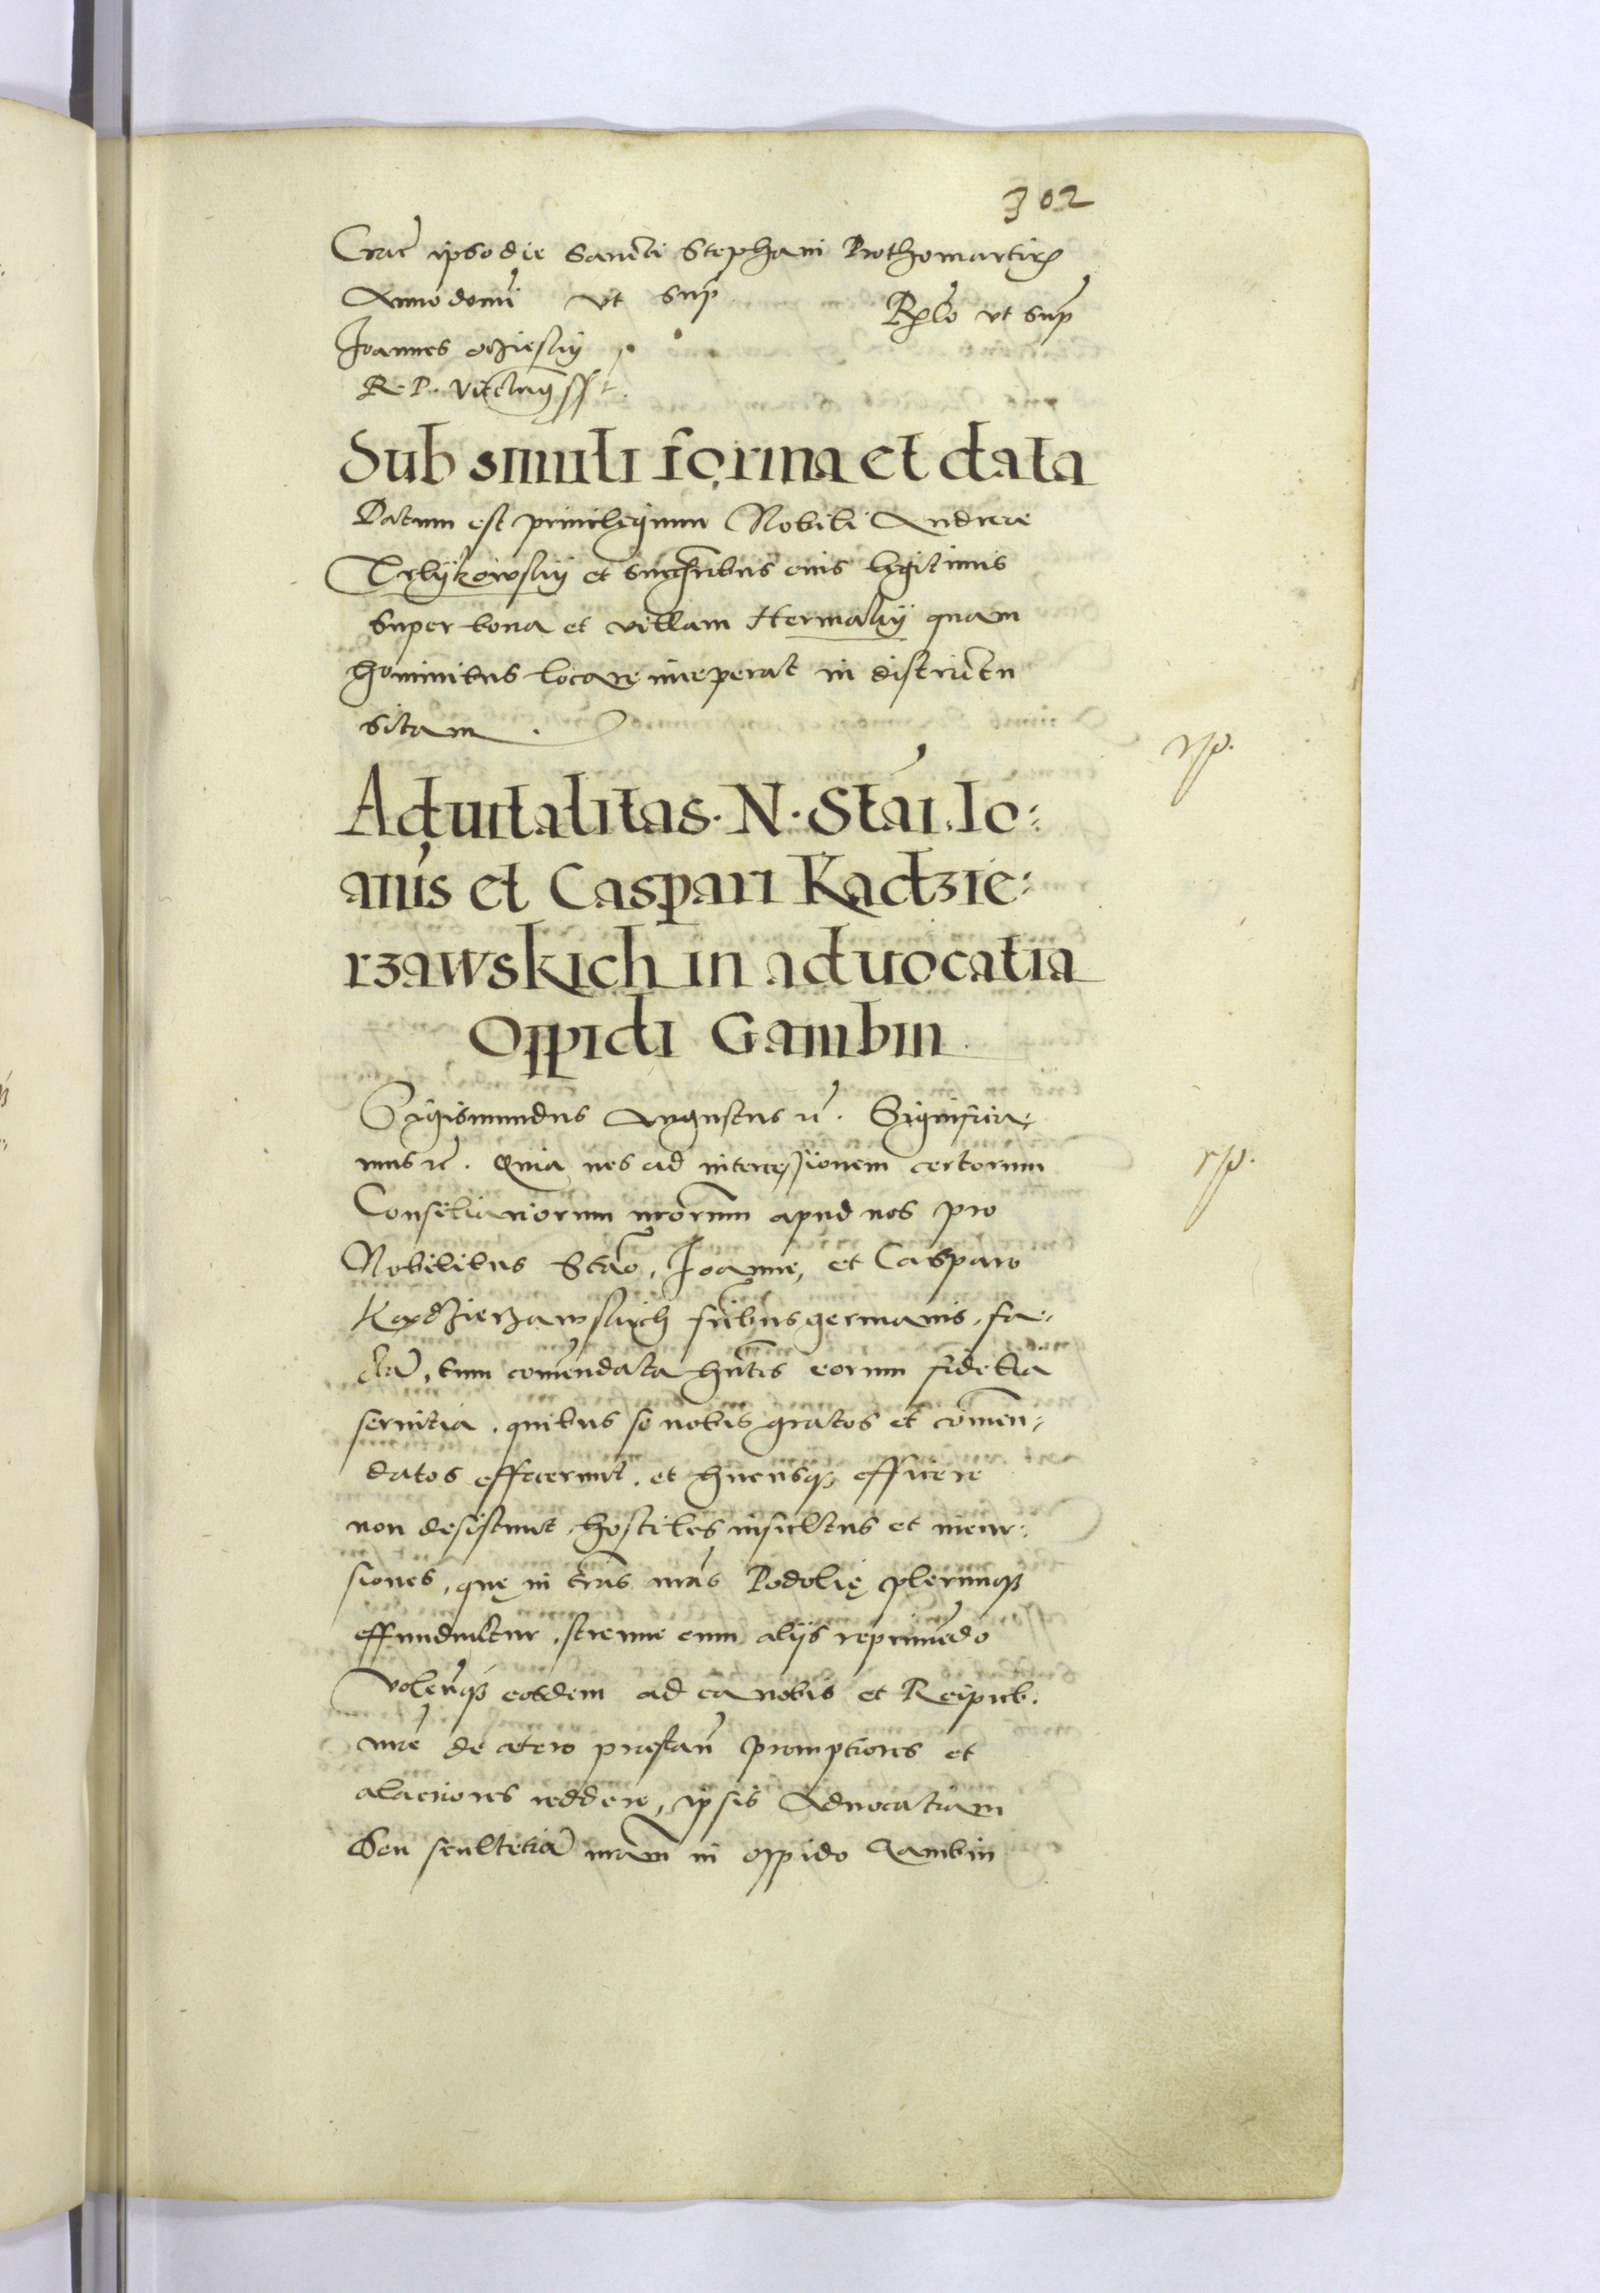 302
Crac̃ ipso die Sancti Stephani Prothomartiris
Anno domi ut sup̃
Rslo ut sup̃
Joannes oczieskij
R. P. Vicecanc̃ sst
Sub simili forma et data
Datum est privilegium Nobili Andreae
Trlijkowskij et succ̃ribus eius legitimis
super bona et villam Hermakij quam
hominibus locare inceperat in districtu
sitam.
rp.
Advitalitas. N. Stãi. Io=
ãnis et Caspari Kadzie=
rzawskich in advocatia
Oppidi Gambin
Sigismundus Augustus rc̃. Significa=
mus rc̃. Quia nos ad intercessionem certorum
rp.
Consiliariorum nr̃orum apud nos pro
Nobilibus Stão, Joanne, et Casparo
Kadzierzawskich fr̃ibus germanis, fa=
ctã, tum com̃endata hñtes eorum fidelia
servitia, quibus se nobis gratos et com̃en=
datos effecerunt, et hucusq3 efficere
non desistunt, hostiles insultus et incur=
siones, que in tr̃as nr̃as Podolie plerunq3
effunduntur, strenue cum alijs reprimẽdo
volẽtesq3 eosdem ad ea nobis et Reipub.
nr̃e de cetero prestan̄ promptiores et
alacriores reddere, ipsis Advocatiam
Seu scultetiã nr̃am in oppido Gambin